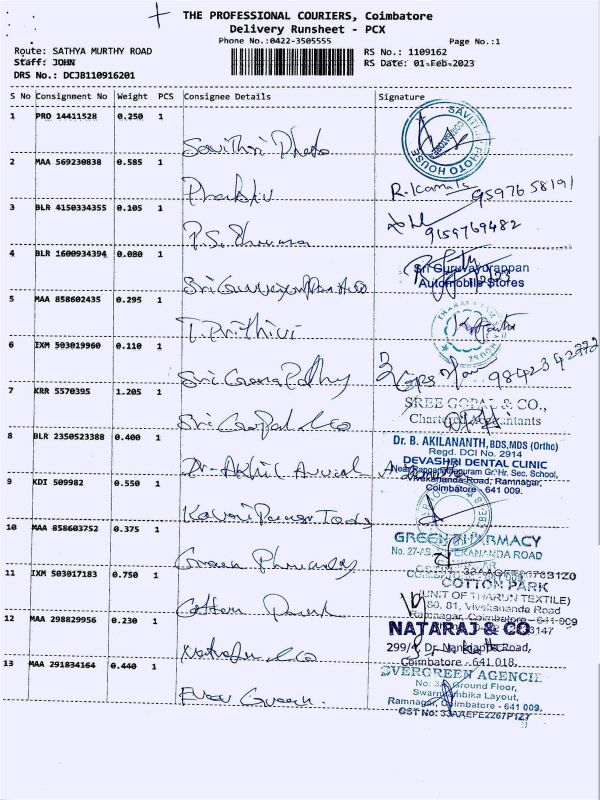 THE PROFESSIONAL COURIERS, Coimbatore
Delivery Runsheet - PCX
Phone No.:0422-3505555
Page No.:1
Route: SATHYA MURTHY ROAD
RS No.: 1109162
Staff: JOHN
RS Date: 01-Feb-2023
DRS No.: DCJB110916201
S No Consignment No Weight PCS Consignee Details Signature
1 PRO 14411528 0.250 1
Savithri Photo
SAVITHRI PHOTO HOUSE
2 MAA 569230838 0.585 1
Prabhu
R. Kamala 9597658191
3 BLR 4150334355 0.105 1
P.S. Sharma
9159769482
4 BLR 1600934394 0.080 1
Sri Guruvayurappan Auto
Sri Guruvayurappan
Automobile Stores
5 MAA 858602435 0.295 1
T. Prithivi
6 IXM 503019960 0.110 1
Sri
9842342772
7 KRR 5570395 1.205 1
Sri Gopal & Co
SREE GOPAL & CO.,
Chartered Accountants
8 BLR 2350523388 0.400 1
Dr. Akhil
Dr. B. AKILANANTH, BDS,MDS (Ortho)
Regd. DCI No. 2914
DEVASHRI DENTAL CLINIC
Near Ranganathapuram Gr. Hr. Sec. School,
Vivekananda Road, Ramnagar,
Coimbatore - 641 009.
9 KDI 509982 0.550 1
Kaveri
10 MAA 858603752 0.375 1
Green Pharmacy
GREEN PHARMACY
VIVEKANANDA ROAD
11 IXM 503017183 0.750 1
Cotton Park
COTTON PARK
(UNIT OF THARUN TEXTILE)
80, 81, Vivekananda Road
Ramnagar, Coimbatore - 641 009
12 MAA 298829956 0.230 1
Nataraj & Co
NATARAJ & CO
299/, Dr. Nanjappa Road,
Coimbatore - 641 018.
13 MAA 291834164 0.440 1
Ever Green.
EVERGREEN AGENCIE
Ground Floor,
Swarnambika Layout,
Ramnagar, Coimbatore - 641 009.
GST No: 33AAEFE2267P1Z7